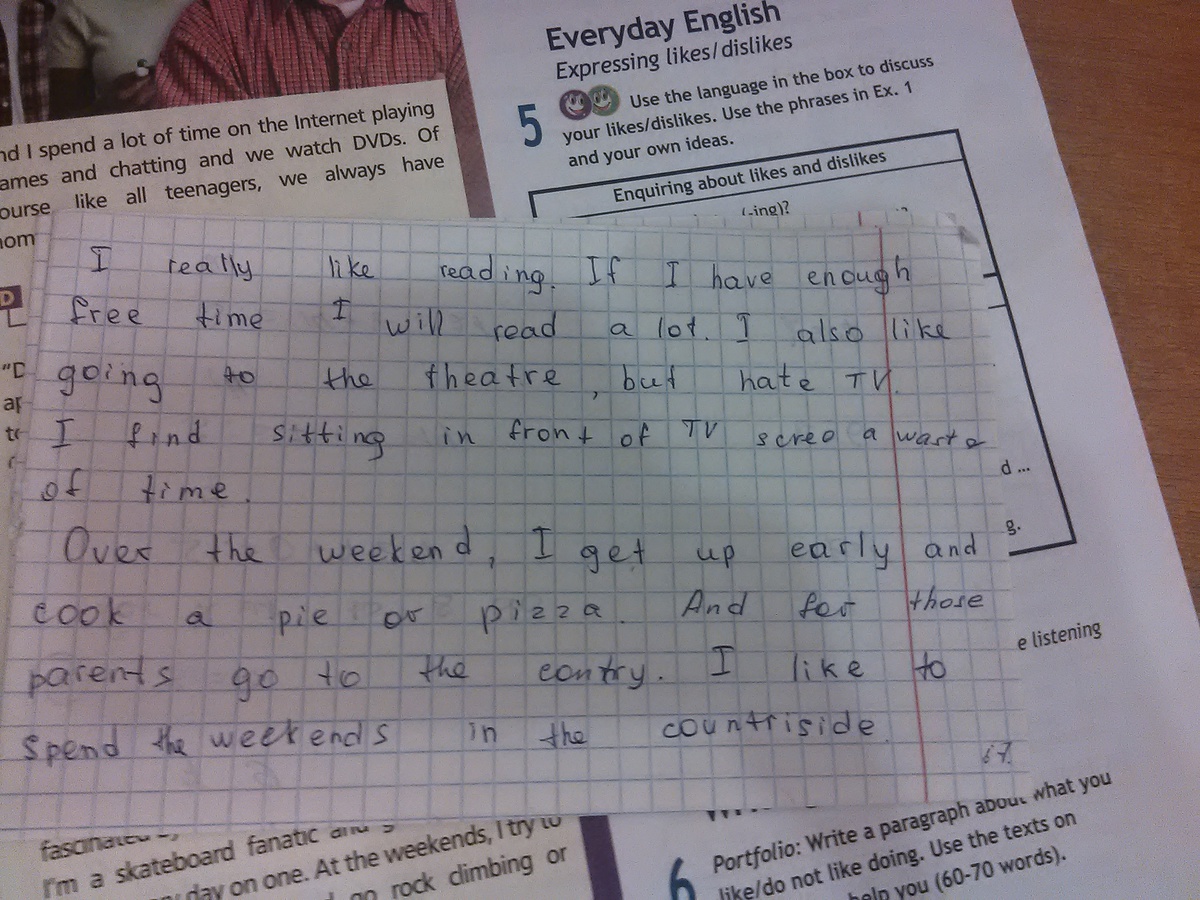 nd I spend a lot of time on the Internet playing
ames and chatting and we watch DVDs. Of
ourse like all teenagers, we always have
hom
D
"D
Everyday English
Expressing likes/dislikes
5 Use the language in the box to discuss
your likes/dislikes. Use the phrases in Ex. 1
and your own ideas.
Enquiring about likes and dislikes
(-ing)?
I really like reading. If I have enough
free time I will read a lot. I also like
going to the theatre, but hate TV.
I find sitting in front of TV screo a waste
of time.
Over the weekend, I get up early and
cook a pie or pizza. And for those
parents go to the contry. I like to
spend the weekends in the countriside.
67.
d ...
g.
e listening
I'm a skateboard fanatic and g
day on one. At the weekends, I try to
go rock climbing or
6 Portfolio: Write a paragraph about what you
like/do not like doing. Use the texts on
help you (60-70 words).